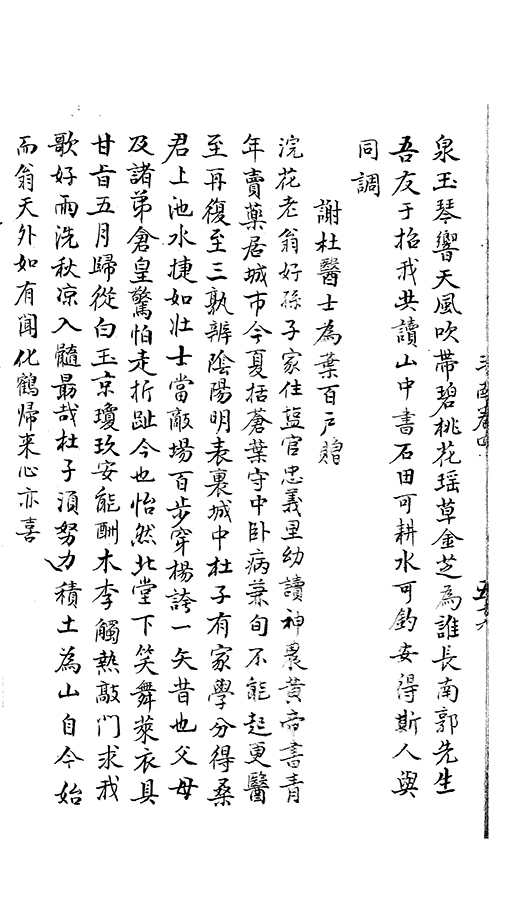 泉玉琴響天風吹帶碧桃花瑶草金芝為誰長南郭先生
吾友于招我共讀山中書石田可耕水可釣安得斯人與
同調
謝杜醫士為葉百戶贈
浣花老翁好孫子家住鹽官忠義里幼讀神農黃帝書青
年賣藥居城市今夏括蒼葉守中卧病兼旬不能起更醫
至再復至三孰辨陰陽明表裏城中杜子有家學分得桑
君上池水捷如壯士當敵場百步穿楊誇一矢昔也父母
及諸弟倉皇驚怕走折趾今也怡然北堂下笑舞萊衣具
甘旨五月歸從白玉京瓊玖安能酬木李觸熱敲門求我
歌好雨洗秋凉入髓最哉杜子須努力積土為山自今始
而翁天外如有聞化鶴歸来心亦喜